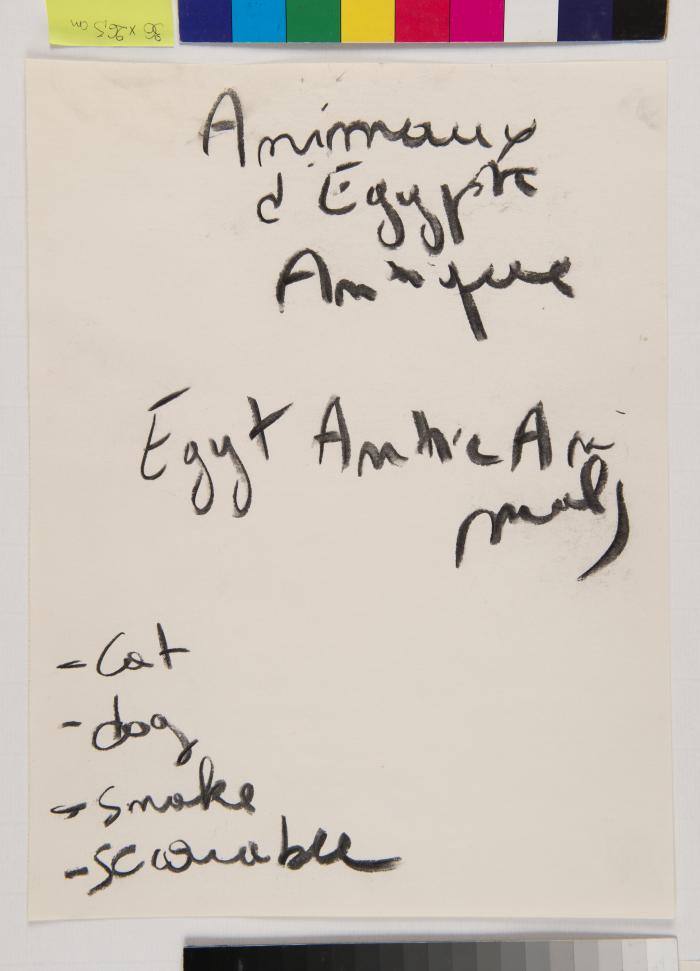 36 x 26,5 cm
Animaux
d'Egypte
Antique
Egyt Anthic Ani
mals
- cat
- dog
- snake
- scarabée